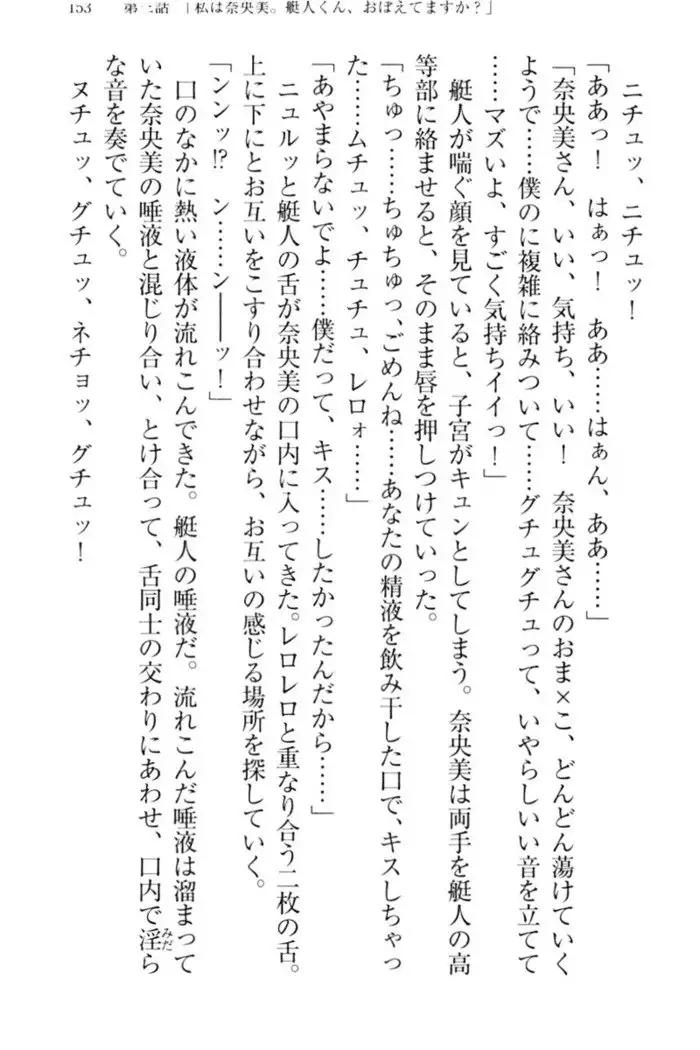 153　第二話「私は奈央美。艇人くん、おぼえてますか？」
ニチュッ、ニチュッ！
「ああっ！　はぁっ！　ああ……はぁん、ああ……」
「奈央美さん、いい、気持ち、いい！　奈央美さんのおま×こ、どんどん蕩けていく
ようで……僕のに複雑に絡みついて……グチュグチュって、いやらしいい音を立てて
……マズいよ、すごく気持ちイイっ！」
艇人が喘ぐ顔を見ていると、子宮がキュンとしてしまう。奈央美は両手を艇人の高
等部に絡ませると、そのまま唇を押しつけていった。
「ちゅっ……ちゅちゅっ、ごめんね……あなたの精液を飲み干した口で、キスしちゃっ
た……ムチュッ、チュチュ、レロォ……」
「あやまらないでよ……僕だって、キス……したかったんだから……」
ニュルッと艇人の舌が奈央美の口内に入ってきた。レロレロと重なり合う二枚の舌。
上に下にとお互いをこすり合わせながら、お互いの感じる場所を探していく。
「ンンッ⁉　ン……ン――ッ！」
口のなかに熱い液体が流れこんできた。艇人の唾液だ。流れこんだ唾液は溜まって
いた奈央美の唾液と混じり合い、とけ合って、舌同士の交わりにあわせ、口内で淫みだら
な音を奏でていく。
ヌチュッ、グチュッ、ネチョッ、グチュッ！